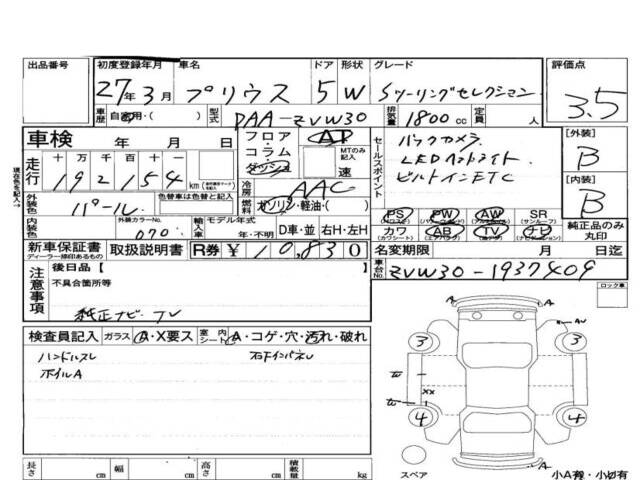 出品番号 初度登録年月 車名 ドア 形状 グレード 評価点
27年3月 プリウス 5 W Sツーリングセレクション 3.5
車歴 自家用・( ) 型式 DAA-ZVW30 排気量 1800 cc 定員 人
車検 年 月 日 フロア・コラム・ AT MTのみ記入 速
セールスポイント バックカメラ [外装] B
現在色を記入→
走行 十 万 千 百 十
192154 km
LEDヘッドライト
冷房 AAC ビルトインETC [内装] B
外装色 パール 色替車は色替と記入 燃料 ガソリン・軽油・( )
PS PW AW SR 純正品のみ丸印
内装色 外装カラーNo. 070 輸入車 モデル年式 年・不明 D車・並 右H・左H
カワ AB TV ナビ
新車保証書 ディーラー捺印あるもの 取扱説明書 R券 ¥10,830 名変期限 月 日迄
注意事項 後日品【 車台No. ZVW30-1937409
不具合箇所等 ロック車
純正ナビ TV
検査員記入 ガラス A・X要ス 室内シート A・コゲ・穴・汚れ・破れ
ハンドルスレ
ホイルA
A
3 3
XX
4 4
A
スペア
長さ cm 幅 cm 高さ cm 積載量 kg
小A有・小切有